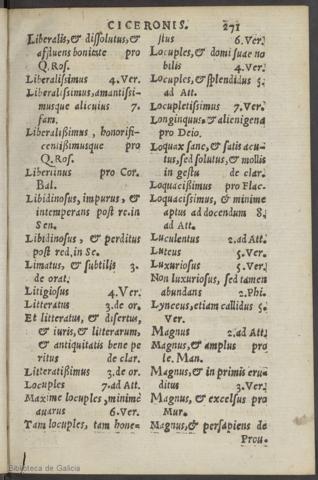 CICERONIS. 271
Liberalis, & dissolutus, &
afluens bonitate pro
Q.Ros.
Liberalissimus 4.Ver.
Liberalissimus, amantissi-
musque alicuius 7.
fam.
Liberalißimus, honorifi-
centißimusque pro
Q.Ros.
Libertinus pro Cor.
Bal.
Libidinosus, impurus, &
intemperans post re.in
Sen.
Libidinosus, & perditus
post red.in Se.
Limatus, & subtilis 3.
de orat.
Litigiosus 4.Ver.
Litteratus 3.de or.
Et litteratus, & disertus,
& iuris, & litterarum,
& antiquitatis bene pe
ritus de clar.
Litteratißimus 3.de or.
Locuples 7.ad Att.
Maxime locuples, minimè
auarus 6.Ver.
Tam locuples, tam hone-
stus 6.Ver.
Locuples, & domi suae no
bilis 4.Ver.
Locuples, & splendidus 5.
ad Att.
Locupletissimus 7.Ver.
Longinquus, & alienigena
pro Deio.
Loquax sane, & satis acu-
tus, sed solutus, & mollis
in gestu de clar.
Loquacißimus pro Flac.
Loquacissimus, & minime
aptus ad docendum 8.
ad Att.
Luculentus 2.ad Att.
Luteus 5.Ver.
Luxuriosus 5.Ver.
Non luxuriosus, sed tamen
abundans 2.Phi.
Lynceus, etiam callidus 5.
Ver.
Magnus 2.ad Att.
Magnus, & amplus pro
le. Man.
Magnus, & in primis eru-
ditus 3.Ver.
Magnus, & excelsus pro
Mur.
Magnus, & persapiens de
Prou.
Biblioteca de Galicia